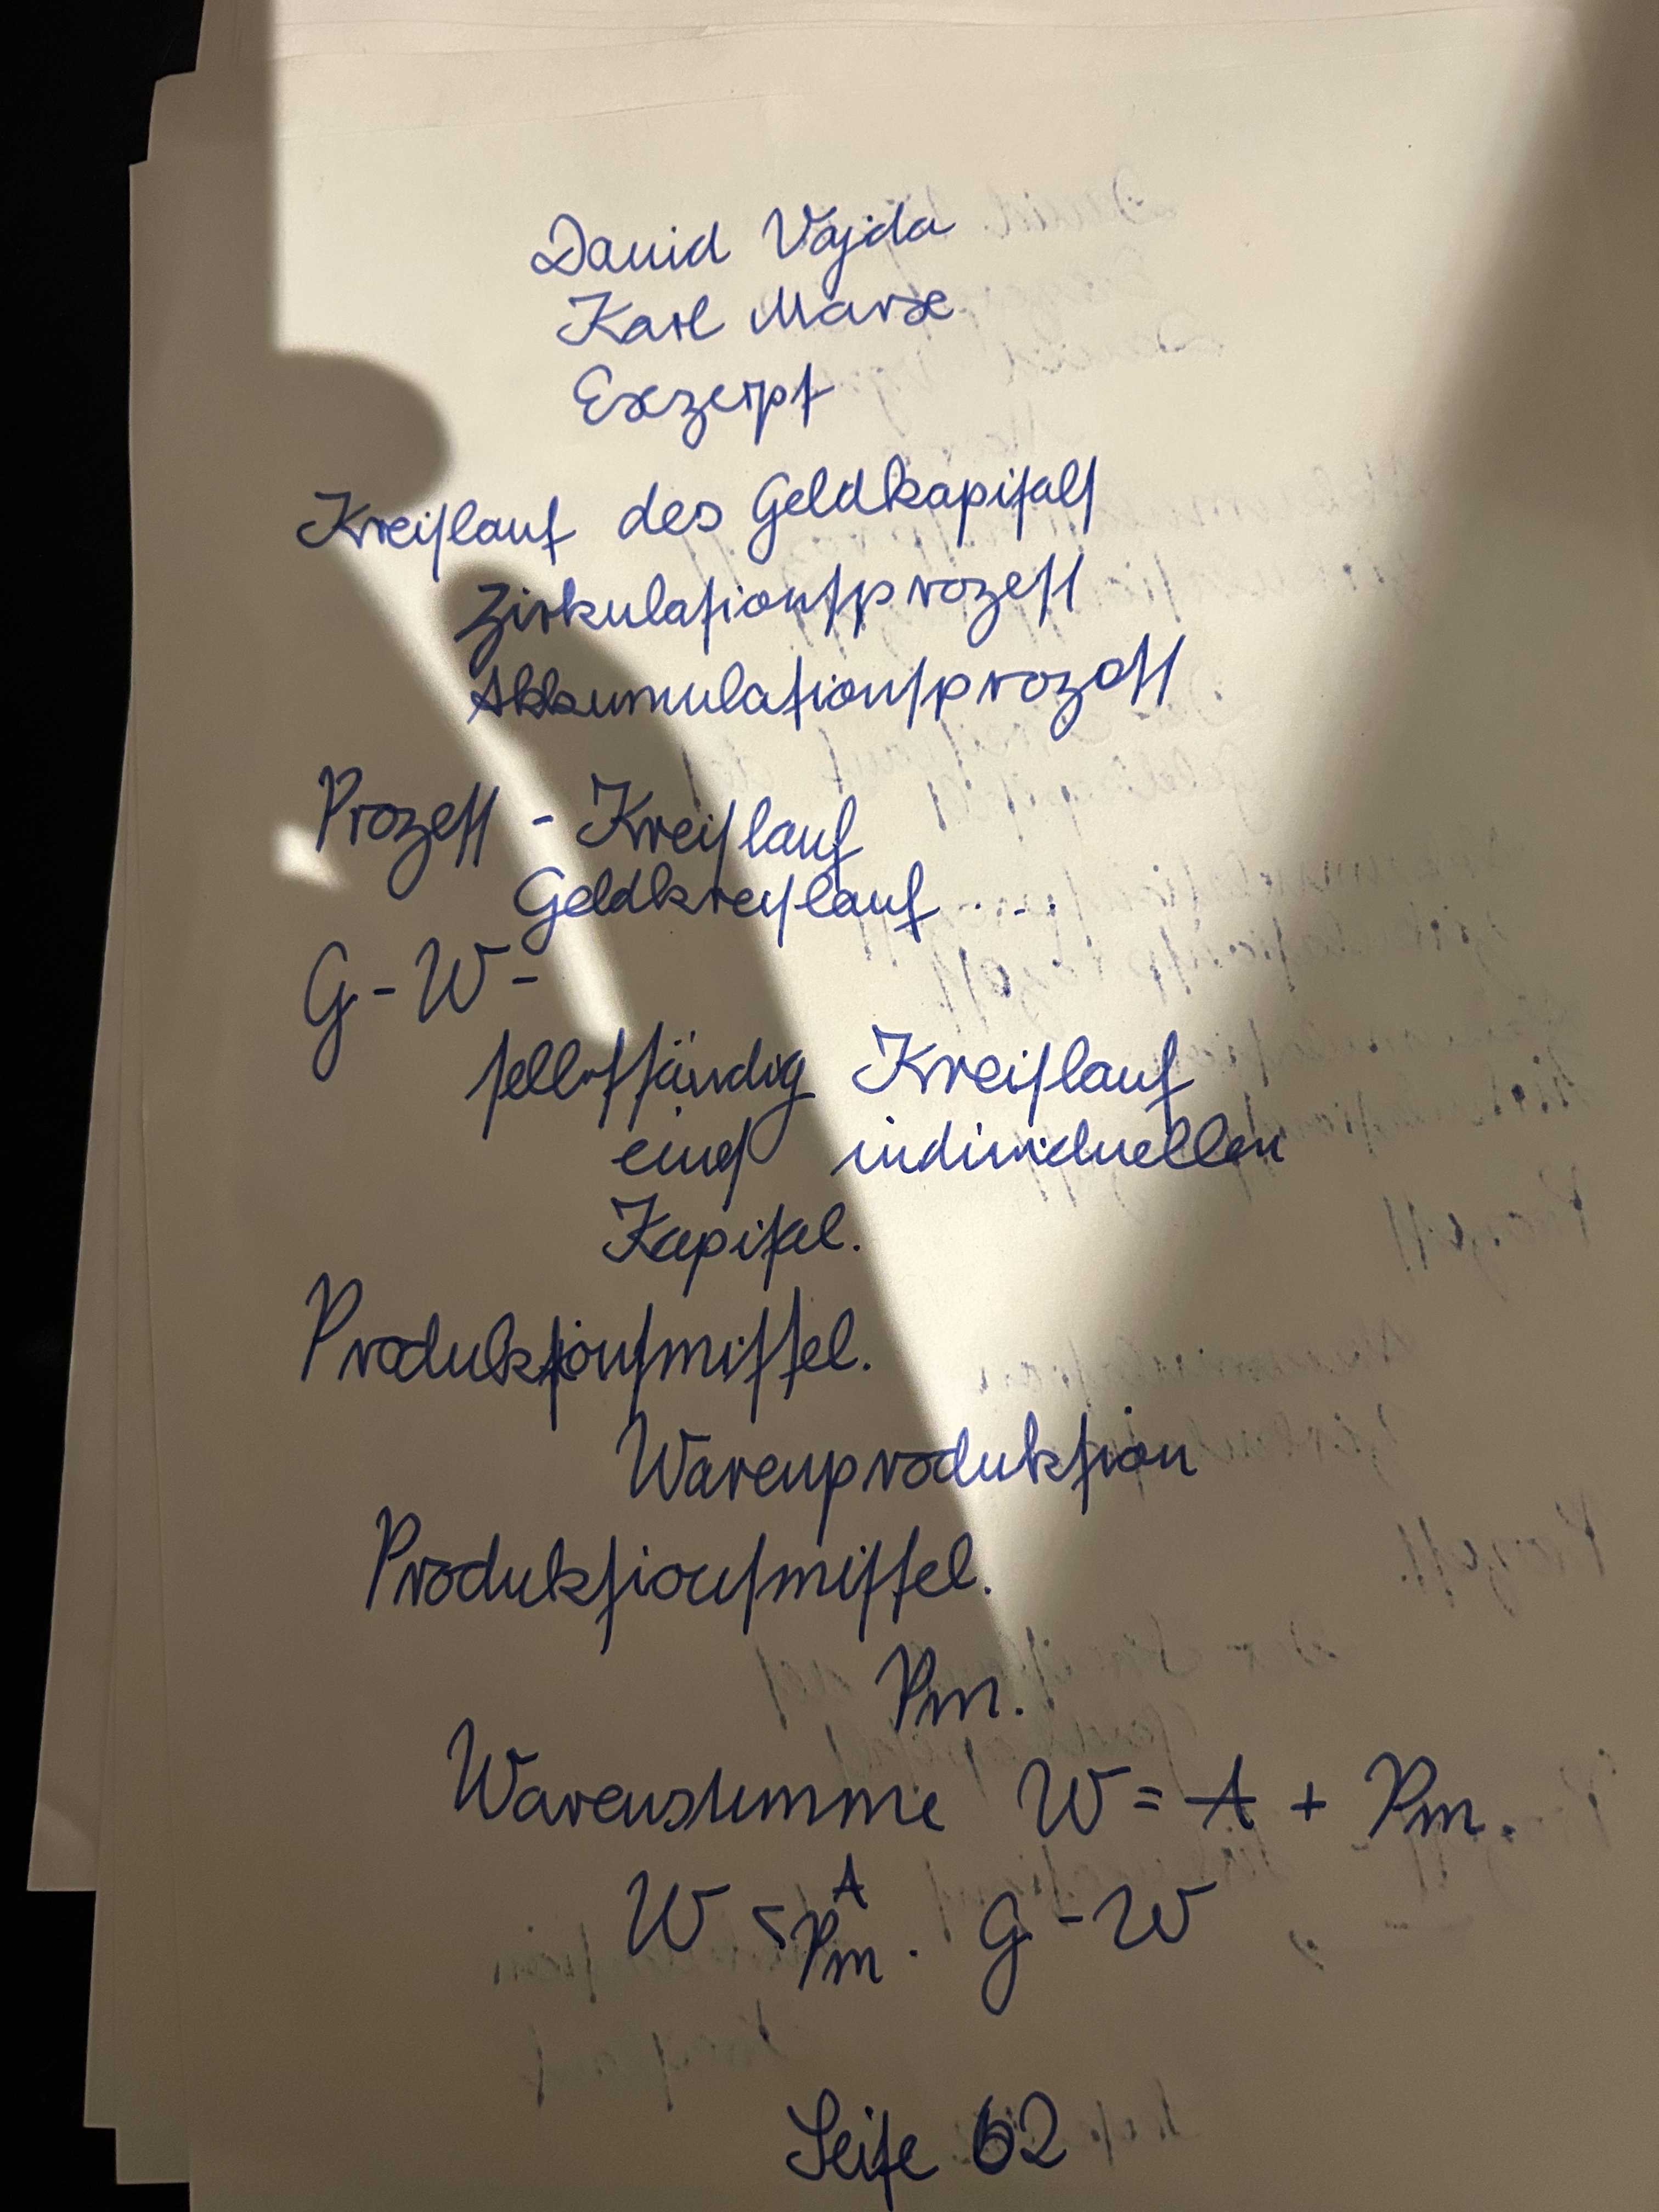 David Vajda
Karl Marx
Exzerpt
Kreiſlauf des Geldkapitalſ
Zirkulationſprozeſſ
Akkumulationſprozeſſ
Prozeſſ - Kreiſlauf
Geldkreiſlauf . . . .
G - W -
ſelbſtſtändig Kreiſlauf
eineſ individuellen
Kapital.
Produktionſmittel.
Warenproduktion
Produktionſmittel.
Pm.
Warensumme W = A + Pm.
W < A
Pm . G - W
Seite 62